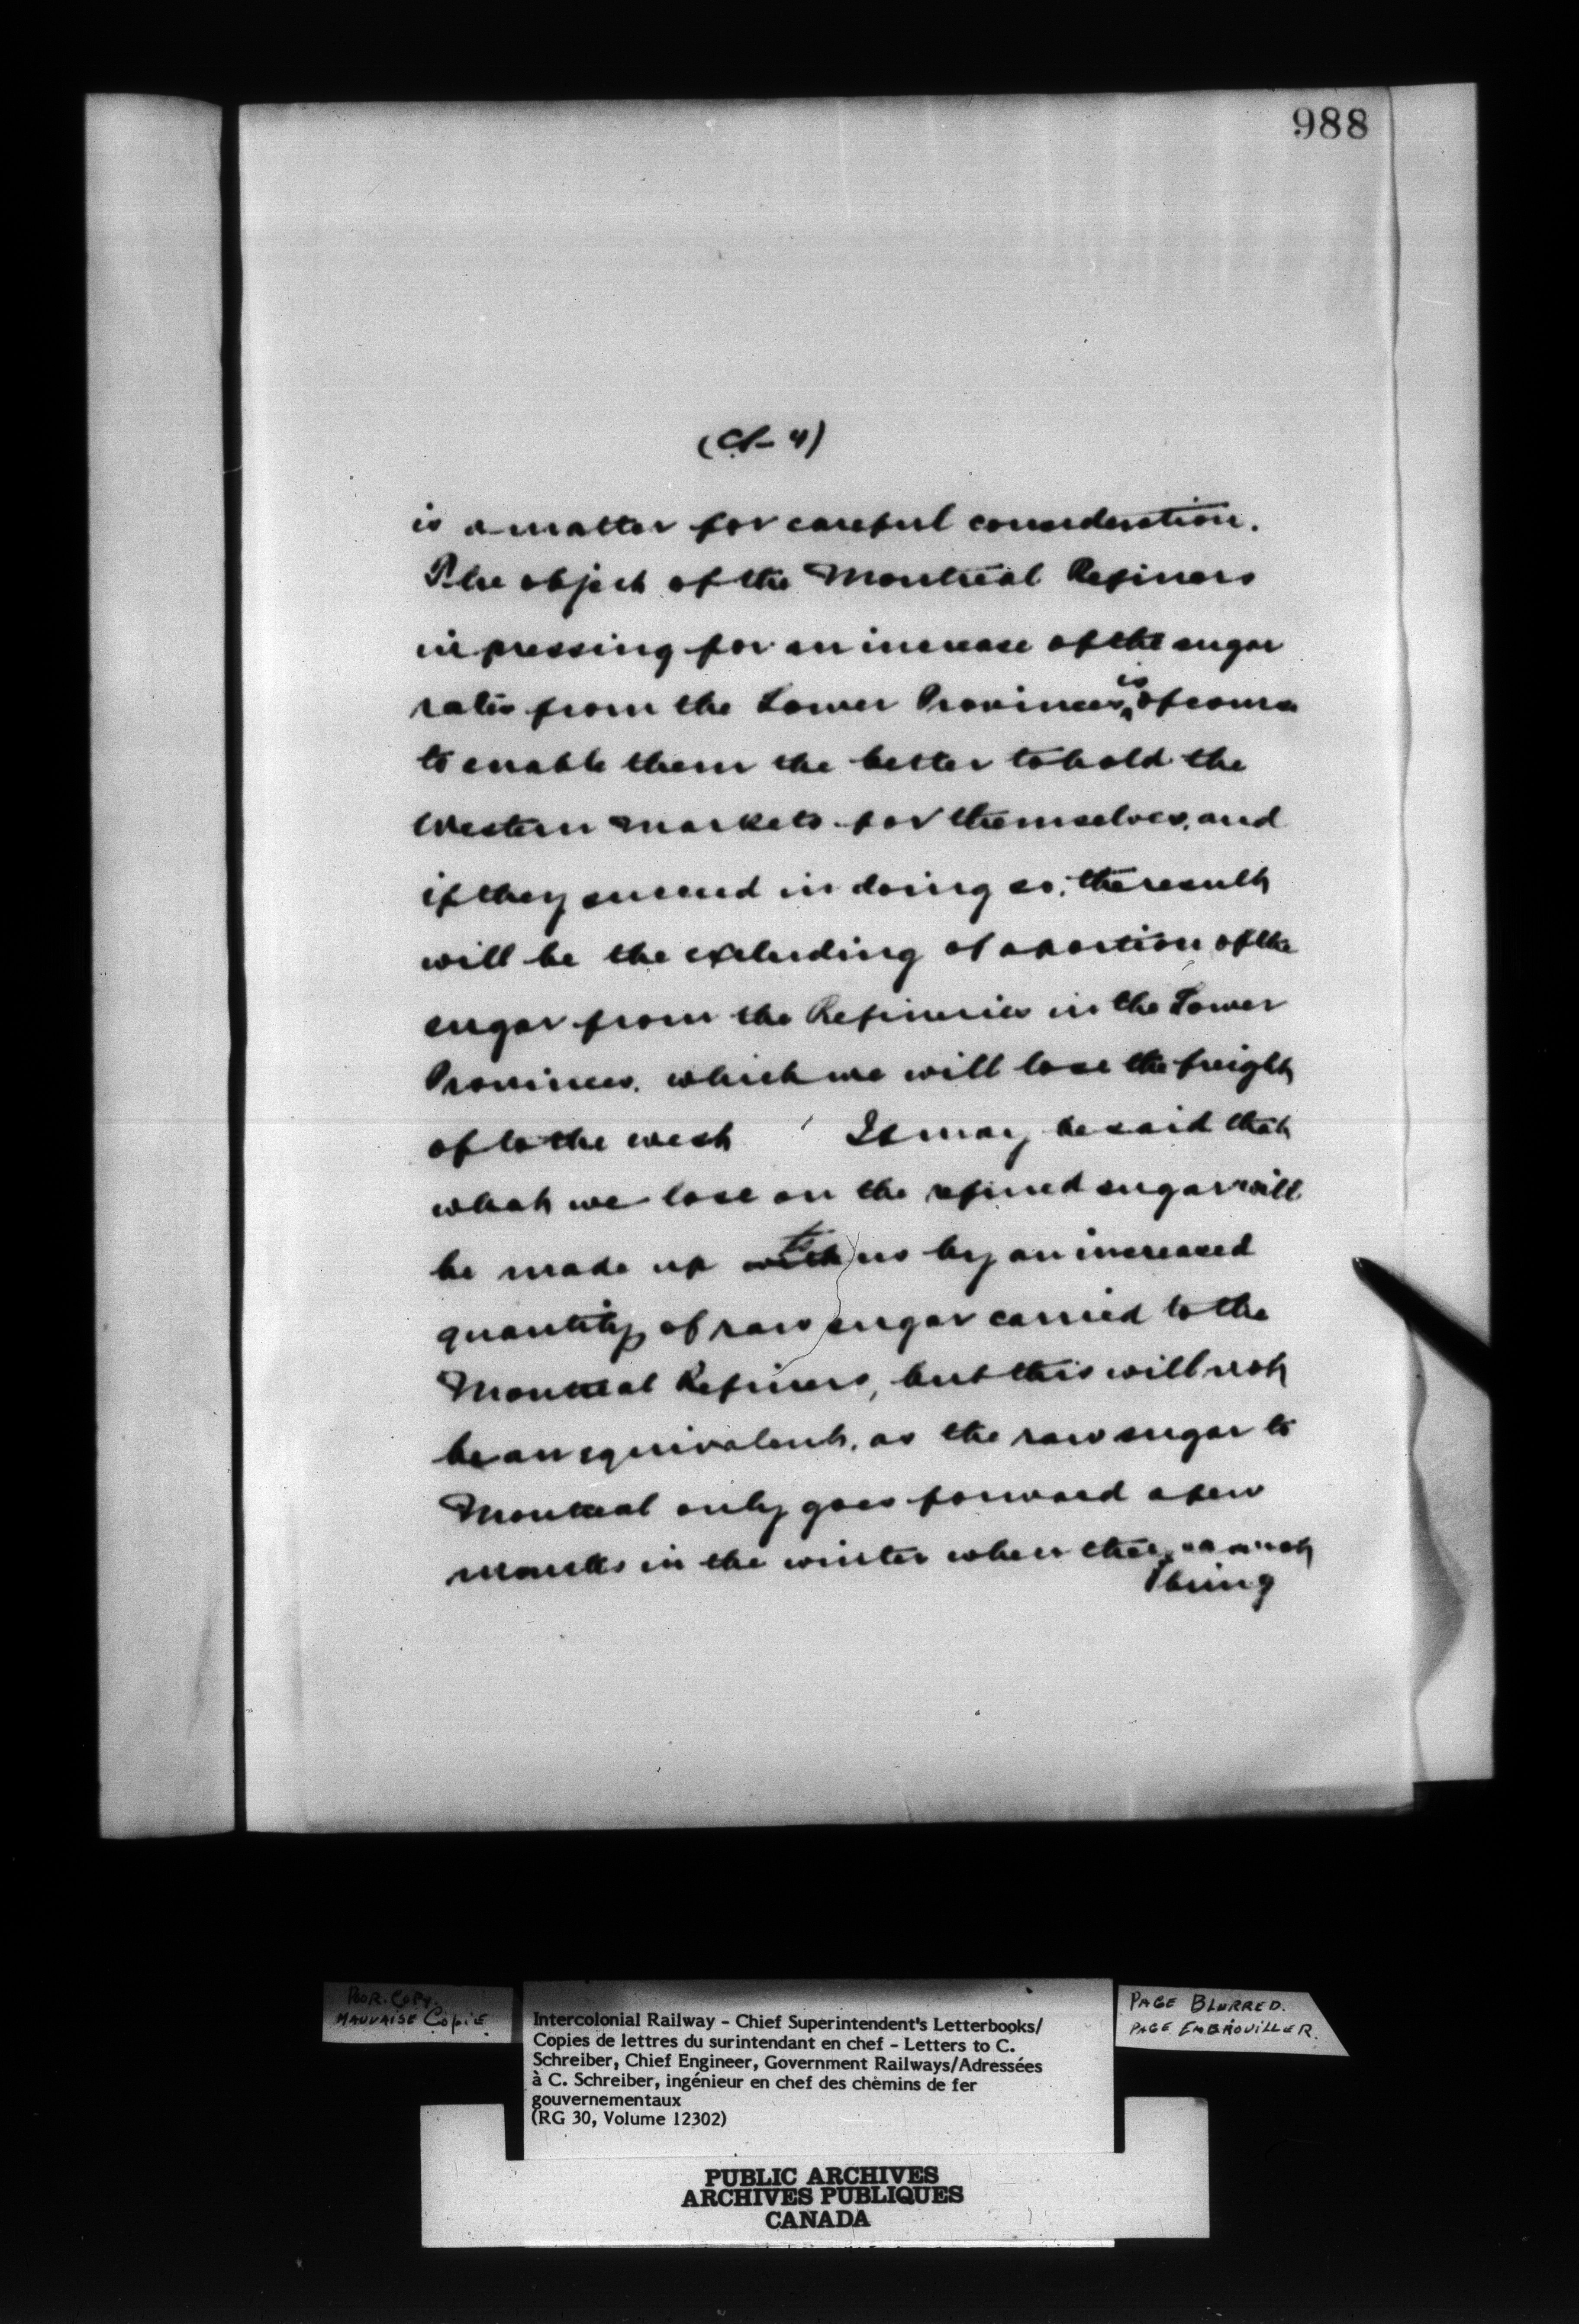 988
(Cl- 4)
is a matter for careful consideration.
The object of the Montreal Refiners
in pressing for an increase of the sugar
rates from the Lower Provinces, is of course
to enable them the better to hold the
Western Markets for themselves, and
if they succeed in doing so, the result
will be the excluding of a portion of the
sugar from the Refineries in the Lower
Provinces. which we will lose the freight
of to the west It may be said that
what we lose on the refined sugar will
be made up to us by an increased
quantity of raw sugar carried to the
Montreal Refiners, but this will not
be an equivalent, as the raw sugar to
Montreal only goes forward a few
months in the winter when
bring
POOR. COPY.
MAUVAISE COPIE
Intercolonial Railway - Chief Superintendent's Letterbooks/
Copies de lettres du surintendant en chef - Letters to C.
Schreiber, Chief Engineer, Government Railways/Adressées
à C. Schreiber, ingénieur en chef des chemins de fer
gouvernementaux
(RG 30, Volume 12302)
PAGE BLURRED.
PAGE EMBROUILLER.
PUBLIC ARCHIVES
ARCHIVES PUBLIQUES
CANADA